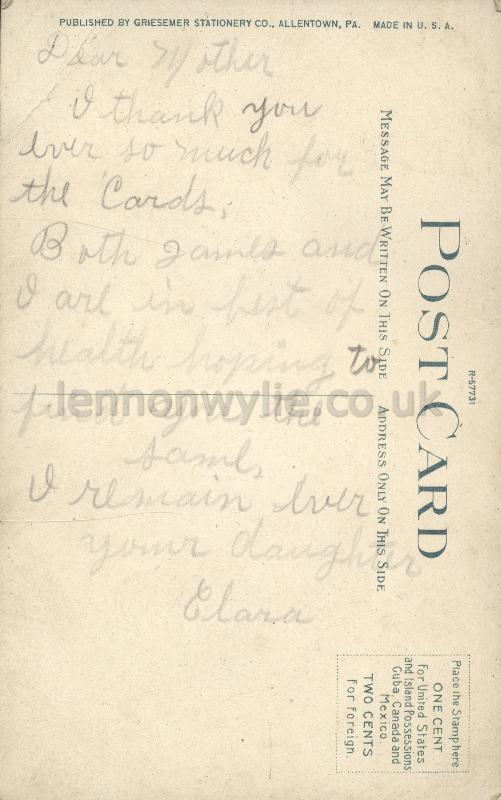 PUBLISHED BY GRIESEMER STATIONERY CO., ALLENTOWN, PA. MADE IN U. S. A.
Dear Mother
I thank you
ever so much for
the Cards,
Both James and
I are in best of
health hoping to
find you the
same,
I remain ever
your daughter
Clara
POST CARD
MESSAGE MAY BE WRITTEN ON THIS SIDE
ADDRESS ONLY ON THIS SIDE
R-57731
Place the Stamp here
ONE CENT
For United States
and Island Possessions
Cuba, Canada and
Mexico.
TWO CENTS
For Foreign.
lennonwylie.co.uk